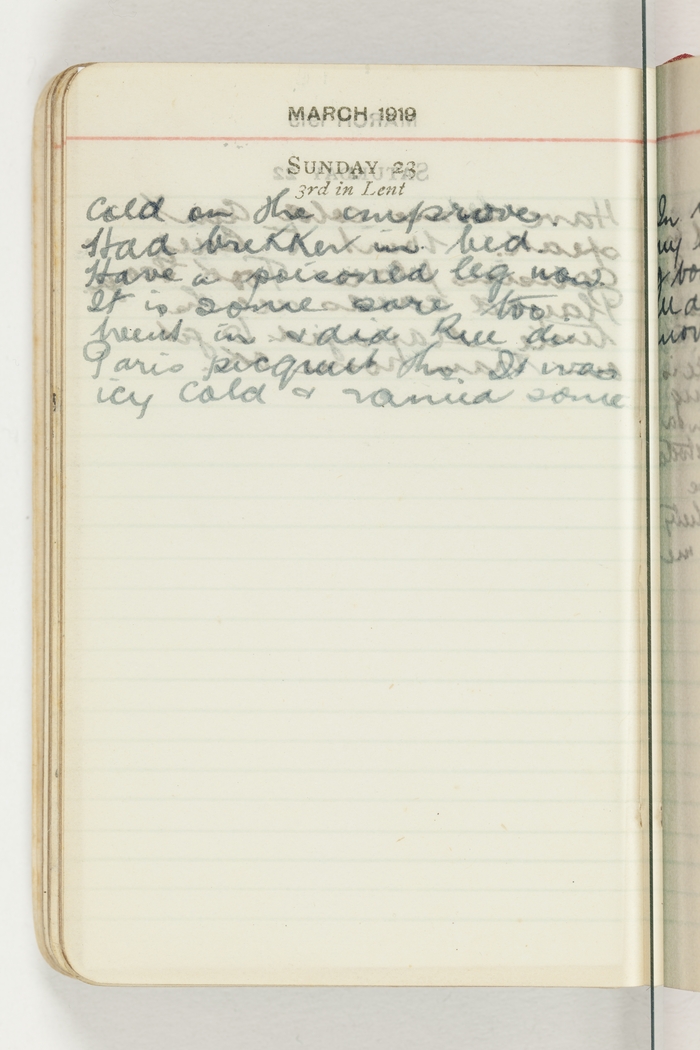 MARCH 1919
SUNDAY 23
3rd in Lent
Cold on the improve.
Had brekker in bed.
Have a poisoned leg now.
It is some sore too.
Went in & did Rue du
Paris picquet It was
icy cold & rained some